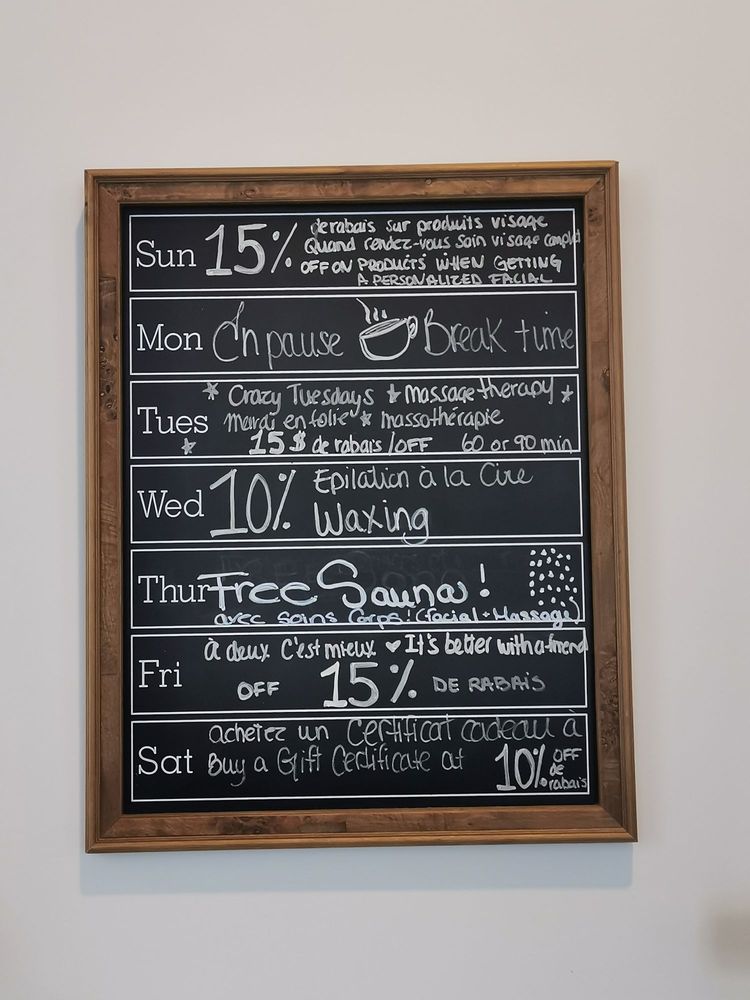 Sun 15% de rabais sur produits visage
Quand rendez-vous soin visage complet
OFF ON PRODUCTS WHEN GETTING
A PERSONALIZED FACIAL
Mon En pause Break time
Tues Crazy Tuesdays massage therapy
Mardi en folie massothérapie
15$ de rabais/OFF 60 or 90 min
Wed 10% Epilation à la Cire
Waxing
Thur Free Sauna!
avec soins Corps! (Facial + Massage)
Fri à deux C'est mieux ❤ It's better with a friend
OFF 15% DE RABAIS
Sat achetez un Certificat cadeau à
Buy a Gift Certificate at 10% OFF
de
rabais